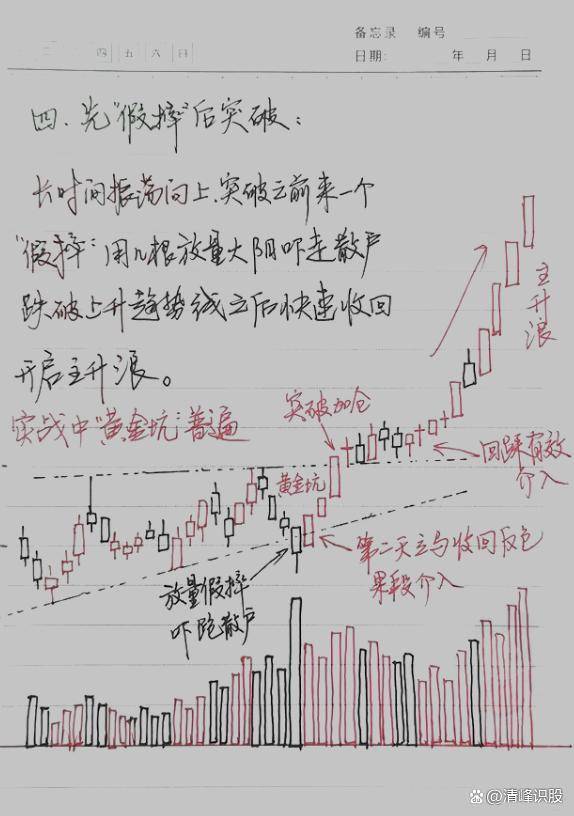 备忘录 编号
四 五 六 日
日期: 年 月 日
四、先"假摔"后突破：
长时间振荡向上、突破之前来一个
"假摔"：用几根放量大阴吓走散户
跌破上升趋势线之后快速收回
开启主升浪。
主升浪
实战中"黄金坑"普遍
突破加仓
回踩有效
介入
黄金坑
第二天立马收回反包
果断介入
放量假摔
吓跑散户
清峰识股